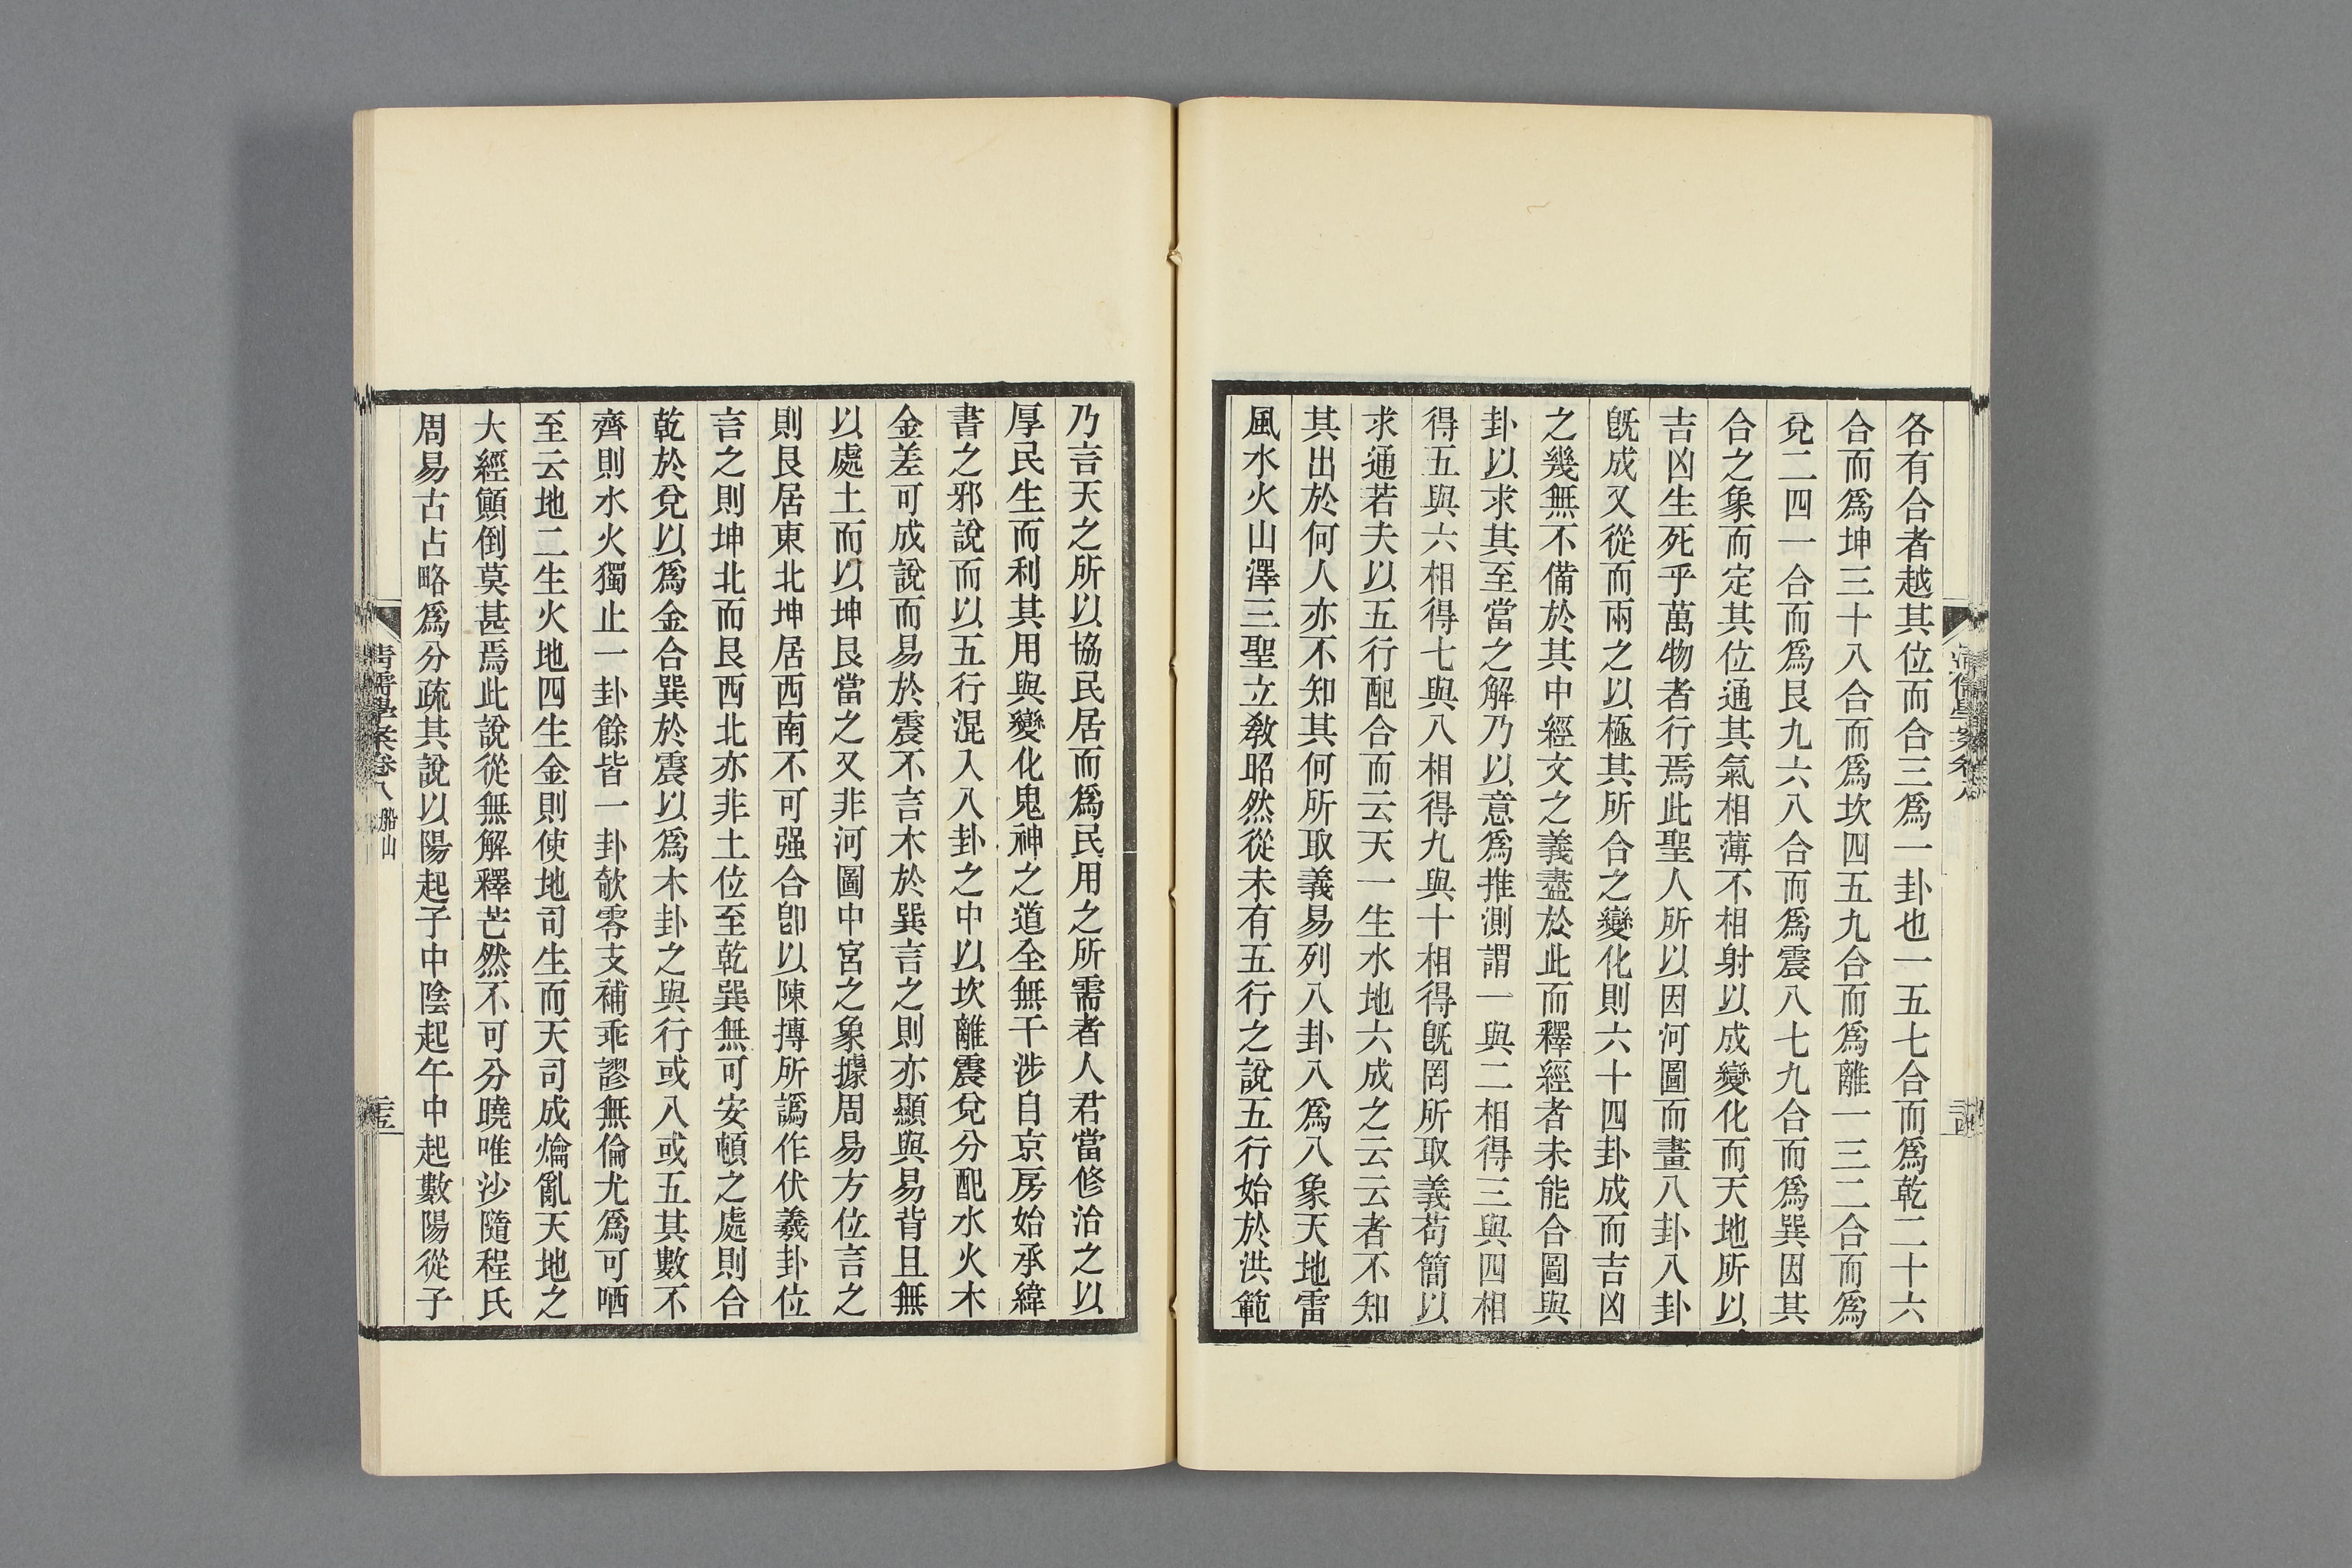 各有合者越其位而合三爲一卦也一五七合而爲乾二十六
合而爲坤三十八合而爲坎四五九合而爲離一三二合而爲
兌二四一合而爲艮九六八合而爲震八七九合而爲巽因其
合之象而定其位通其氣相薄不相射以成變化而天地所以
吉凶生死乎萬物者行焉此聖人所以因河圖而畫八卦八卦
旣成又從而兩之以極其所合之變化則六十四卦成而吉凶
之幾無不備於其中經文之義盡於此而釋經者未能合圖與
卦以求其至當之解乃以意爲推測謂一與二相得三與四相
得五與六相得七與八相得九與十相得旣罔所取義苟簡以
求通若夫以五行配合而云天一生水地六成之云云者不知
其出於何人亦不知其何所取義易列八卦八爲八象天地雷
風水火山澤三聖立敎昭然從未有五行之說五行始於洪範
乃言天之所以協民居而爲民用之所需者人君當修治之以
厚民生而利其用與變化鬼神之道全無干涉自京房始承緯
書之邪說而以五行混入八卦之中以坎離震兌分配水火木
金差可成說而易於震不言木於巽言之則亦顯與易背且無
以處土而以坤艮當之又非河圖中宮之象據周易方位言之
則艮居東北坤居西南不可强合卽以陳摶所譌作伏羲卦位
言之則坤北而艮西北亦非土位至乾巽無可安頓之處則合
乾於兌以爲金合巽於震以爲木卦之與行或八或五其數不
齊則水火獨止一卦餘皆一卦欹零支補乖謬無倫尤爲可哂
至云地二生火地四生金則使地司生而天司成爚亂天地之
大經顚倒莫甚焉此說從無解釋芒然不可分曉唯沙隨程氏
周易古占略爲分疏其說以陽起子中陰起午中起數陽從子
清儒學案卷八 船山